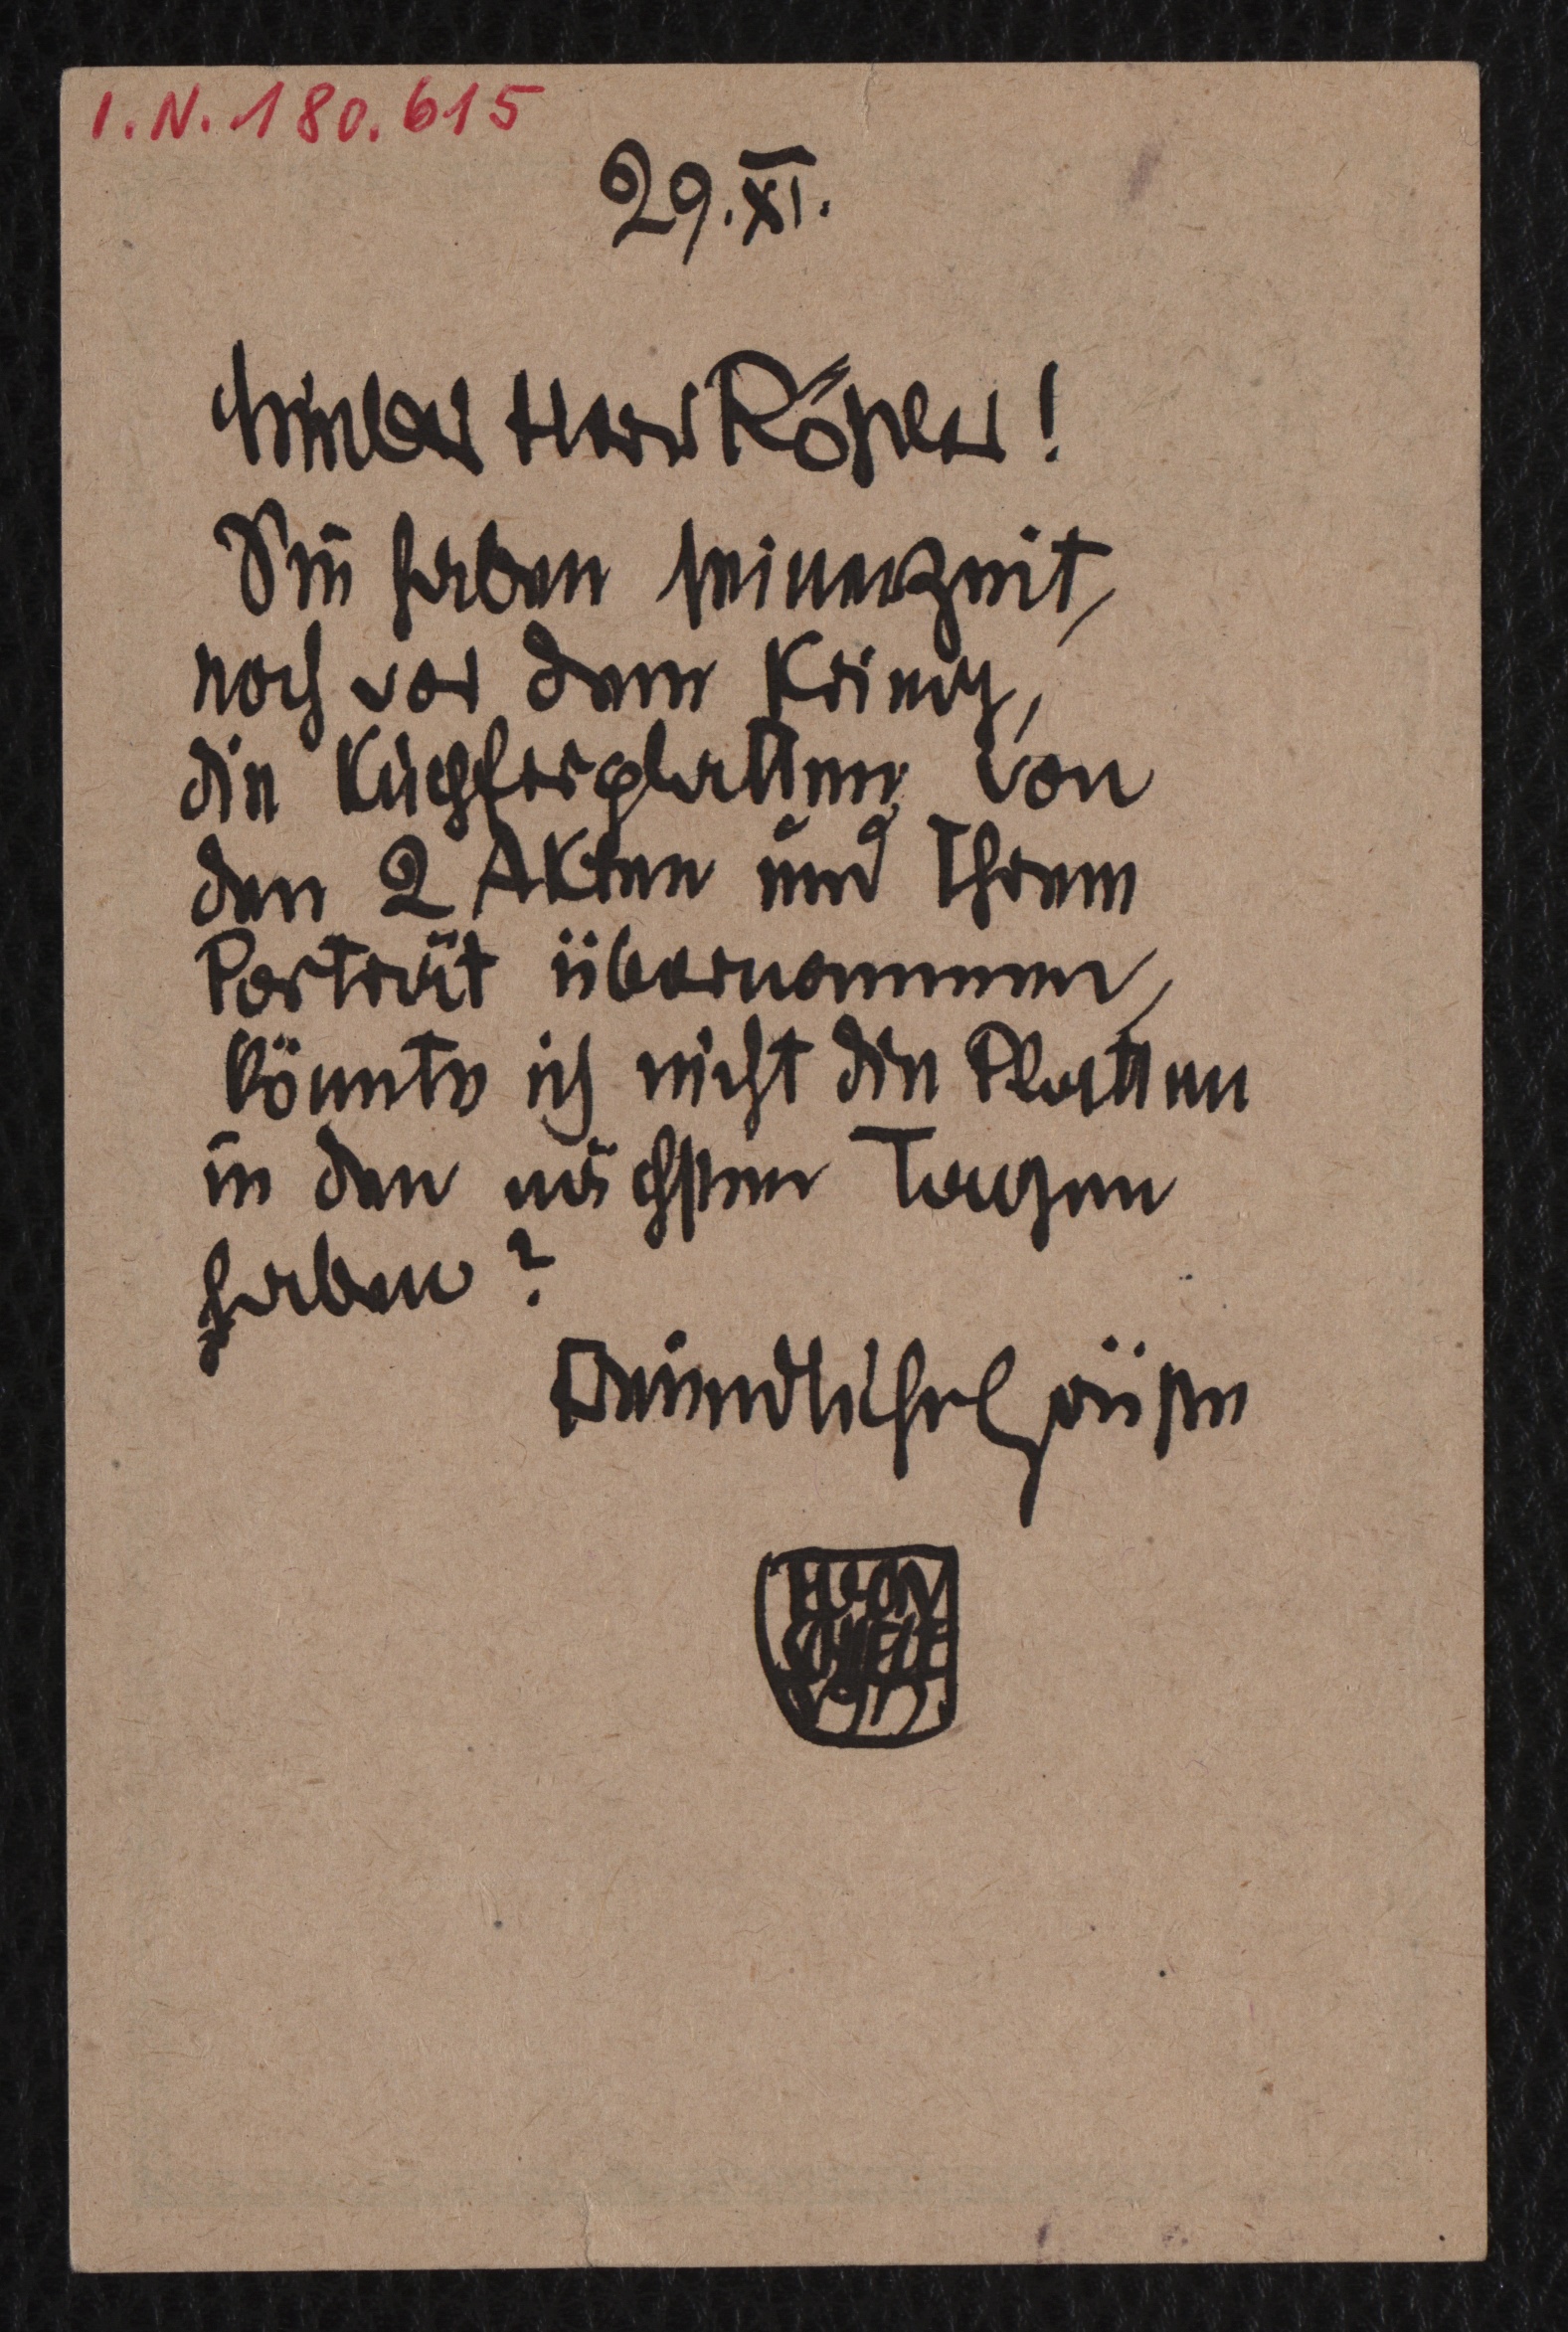 I.N. 180.615
29. XI.
Lieber Herr Rößler!
Sie haben seinerzeit,
noch vor dem Krieg,
die Kupferplatten von
den 2 Akten und Ihrem
Porträt übernommen,
könnte ich nicht die Platten
in den nächsten Tagen
haben?
Freundliche Grüße
EGON
SCHIELE